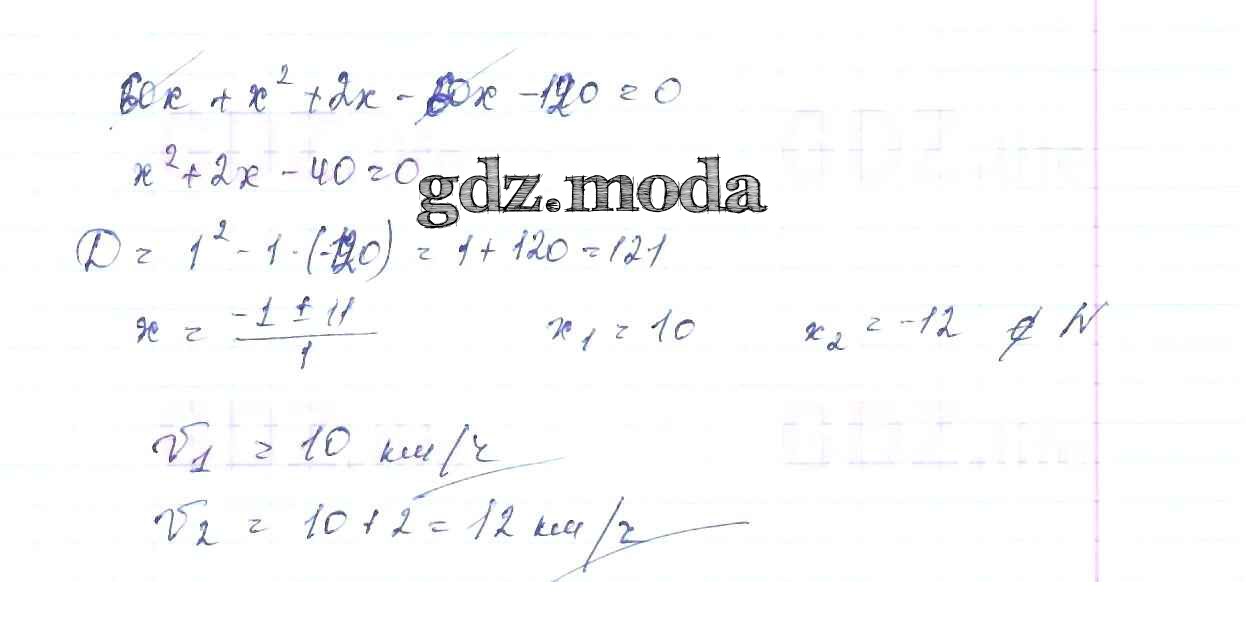 60x + x² + 2x - 60x - 120 = 0
x² + 2x - 40 = 0
gdz.moda
D = 1² - 1·(-120) = 1 + 120 = 121
x = (-1 ± 11)/1 x₁ = 10 x₂ = -12 ∉ N
V₁ = 10 км/ч
V₂ = 10 + 2 = 12 км/ч